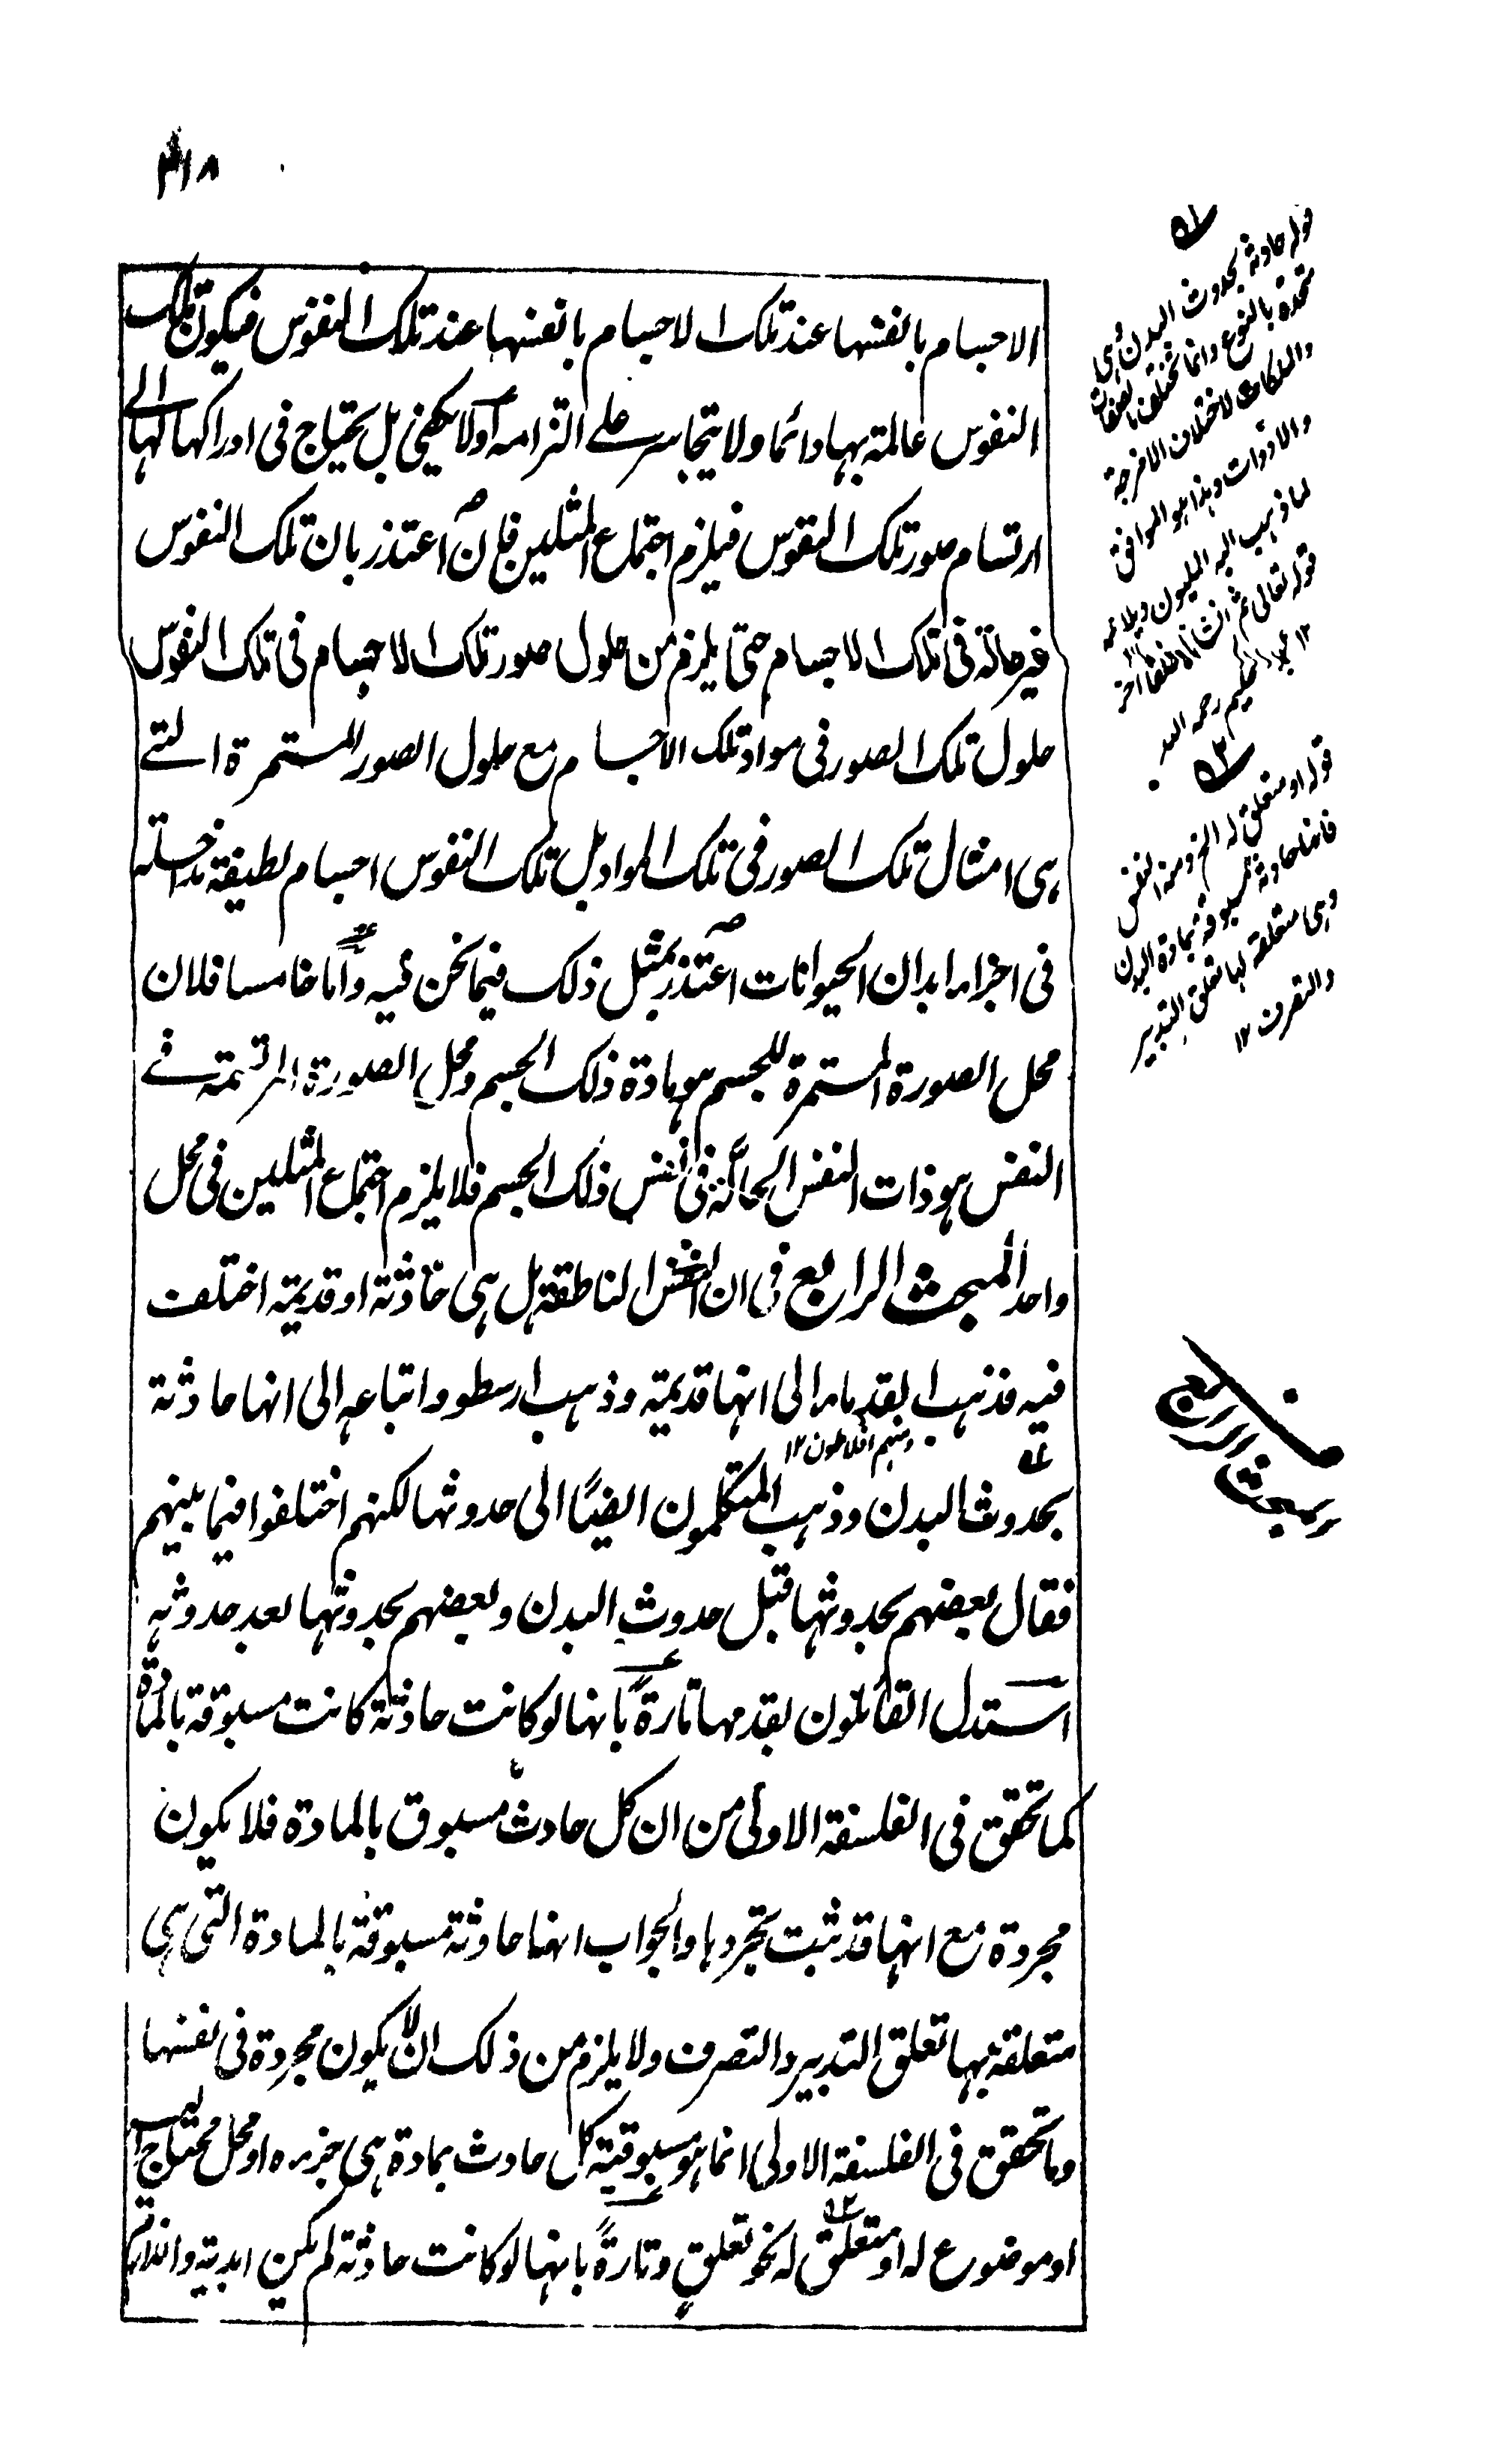 ٣١٨
الاجسام بانفسها عند تلك الاجسام بانفسها عند تلك النفوس فيكون تلك
النفوس عالمة بها دائما ولا يتجاسر على التزامه اولا يكفى بل يحتاج فى ادراكها لها الى
ارتسام صور تلك النفوس فيلزم اجتماع المثلين فان اعتذر بان تلك النفوس
غير حالة فى تلك الاجسام حتى يلزم من حلول صور تلك الاجسام فى تلك النفوس
حلول تلك الصور فى مواد تلك الاجسام مع حلول الصور المستمرة التى
هى امثال تلك الصور فى تلك المواد بل تلك النفوس اجسام لطيفة متداخلة
فى اجزاء ابدان الحيوانات اعتذر بمثل ذلك فيما نحن فيه واما خامسا فلان
محل الصورة المستمرة للجسم هو مادة ذلك الجسم ومحل الصورة المرتسمة فى
النفس هو ذات النفس الحالة فى نفس ذلك الجسم فلا يلزم اجتماع المثلين فى محل
واحد المبحث الرابع فى ان النفس الناطقة هل هى حادثة او قديمة اختلف
فيه فذهب القدماء الى انها قديمة وذهب ارسطو واتباعه الى انها حادثة
ومنهم افلاطون ١٢
بحدوث البدن وذهب المتكلمون ايضًا الى حدوثها لكنهم اختلفوا فيما بينهم
فقال بعضهم بحدوثها قبل حدوث البدن وبعضهم بحدوثها بعد حدوثه
استدل القائلون بقدمها تارةً بانها لو كانت حادثة كانت مسبوقة بالمادة
كما تحقق فى الفلسفة الاولى من ان كل حادث مسبوق بالمادة فلا يكون
مجردة مع انها قد ثبت تجردها والجواب انها حادثة مسبوقة بالمادة التى هى
متعلقة بها تعلق التدبير والتصرف ولا يلزم من ذلك ان لا يكون مجردة فى نفسها
وما تحقق فى الفلسفة الاولى انما هو مسبوقية كل حادث بمادة هى جزءه او محل محتاج اليه
او موضوع له او متعلق له نحو تعلق وتارةً بانها لو كانت حادثة لم يكن ابدية واللازم
قوله حادثة بحدوث البدن وهى
متحدة بالنوع وانما تختلف بالصفات
والملكات لاختلاف الامزجة
والادوات وهذا هو الموافق
لما ذهب اليه المليون ويلائمه
قوله تعالى ثم انشأناه خلقا آخر
١٢ عبد الحكيم رحمه الله
قوله او متعلق له الخ ومنه النفس
فانها حادثة مسبوقة بمادة البدن
وهى متعلقة لها تعلق التدبير
والتصرف ١٢
مبحث الرابع